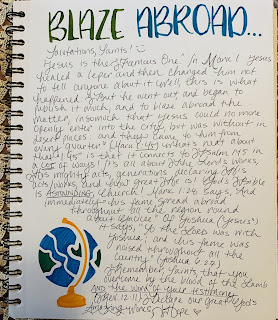 BLAZE ABROAD...
Salutations, Saints! :)
Jesus is the "Famous One." In Mark 1 Jesus
healed a leper and then changed him not
to tell anyone about it. Well, this is what
happened: "But he went out, and began to
publish it much, and to blaze abroad the
matter, insomuch that Jesus could no more
openly enter into the city, but was without in
desert places: and they came to him from
every quarter" (Mark 1:45). What's neat about
this is that it connects to Psalm 145 in
a lot of ways! It's all about God's works,
His mighty acts, generations declaring His
acts/works, and how great He is! God's
is astounding, Church! Mark 1:28 says, "And
immediately his fame spread abroad
throughout all the region round
about Galilee." Of Yeshua (Jesus)
it says, "So the Lord was with
Joshua; and his fame was
noised throughout all the
country" (Joshua 6:27).
Remember, Saints, that you
overcome by the blood of the Lamb
and the word of your testimony
(Rev. 12:11). Declare our great God's
amazing works,
Hope